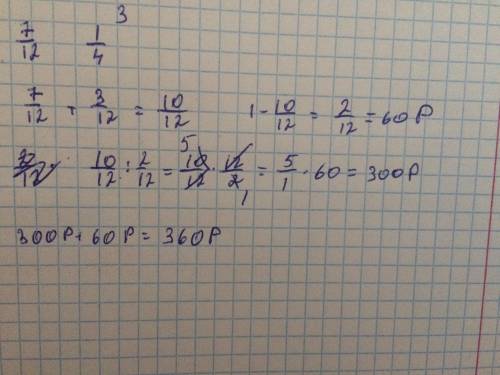 7/12 1/4 3
7/12 + 3/12 = 10/12 1 - 10/12 = 2/12 = 60Р
10/12 : 2/12 = 10/12 · 12/2 = 5/1 · 60 = 300Р 5 1
300Р + 60Р = 360Р